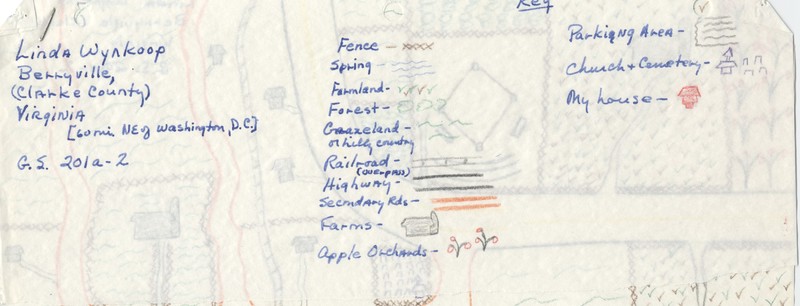 Linda Wynkoop
Berryville,
(Clarke County)
Virginia
[60 mi. NE of Washington, D.C.]
G.S. 201a-2
Key
Fence -
Spring -
Farmland -
Forest -
Grazeland -
or hilly country
Railroad -
(overpass)
Highway -
Secondary Rds -
Farms -
Apple Orchards -
Parking Area -
Church + Cemetery -
My house -